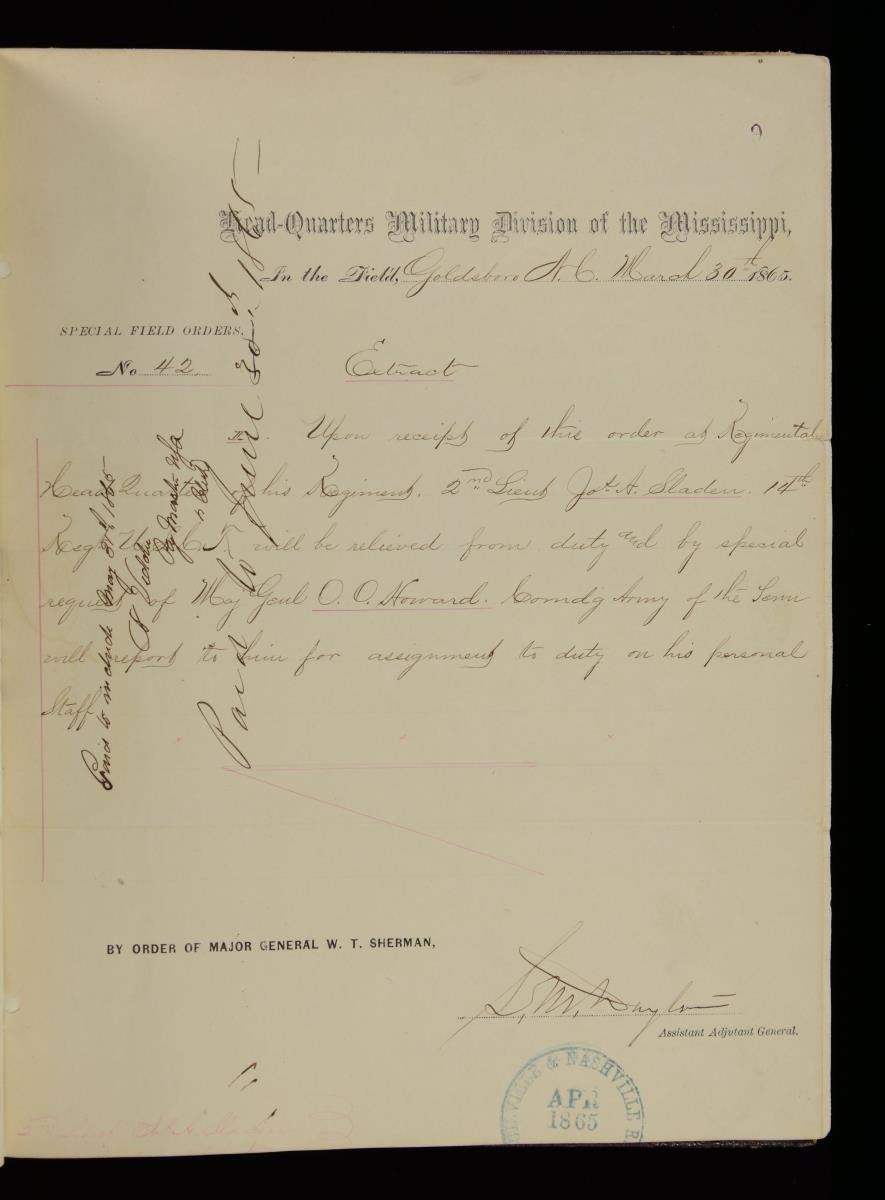 Head-Quarters Military Division of the Mississippi,
In the Field, Goldsboro N.C. March 30th 1865.
SPECIAL FIELD ORDERS,
No 42
Extract
II. Upon receipt of this order at Regimental
Head Quarters his Regiment. 2nd Lieut Jos. A. Sladen. 14th
Regt U.S.C.T. will be relieved from duty and by special
request of Maj Genl O. O. Howard. Comd'g Army of the Tenn
will report to him for assignment to duty on his personal
Staff
Paid to include May 31st 1865
Paymaster USA
Paid to June 30th 1865
BY ORDER OF MAJOR GENERAL W. T. SHERMAN,
L. M. Dayton
Assistant Adjutant General.
VILLE & NASHVILLE R
APR
1865